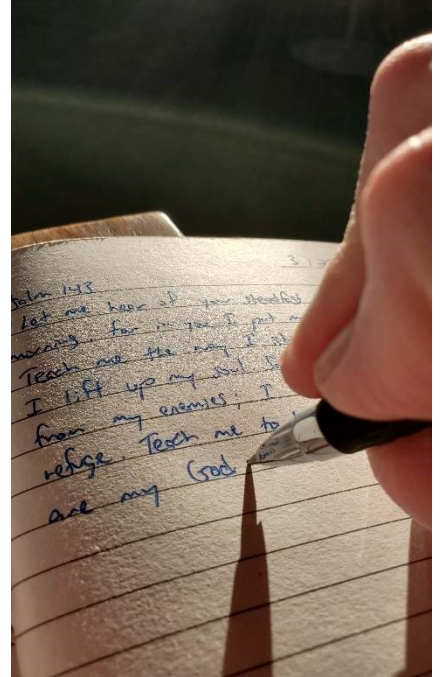 Psalm 143
Let me hear of your steadfast
morning for in you I put
Teach me the way I
I lift up my soul
from my enemies; I
refuge. Teach me to
are my God